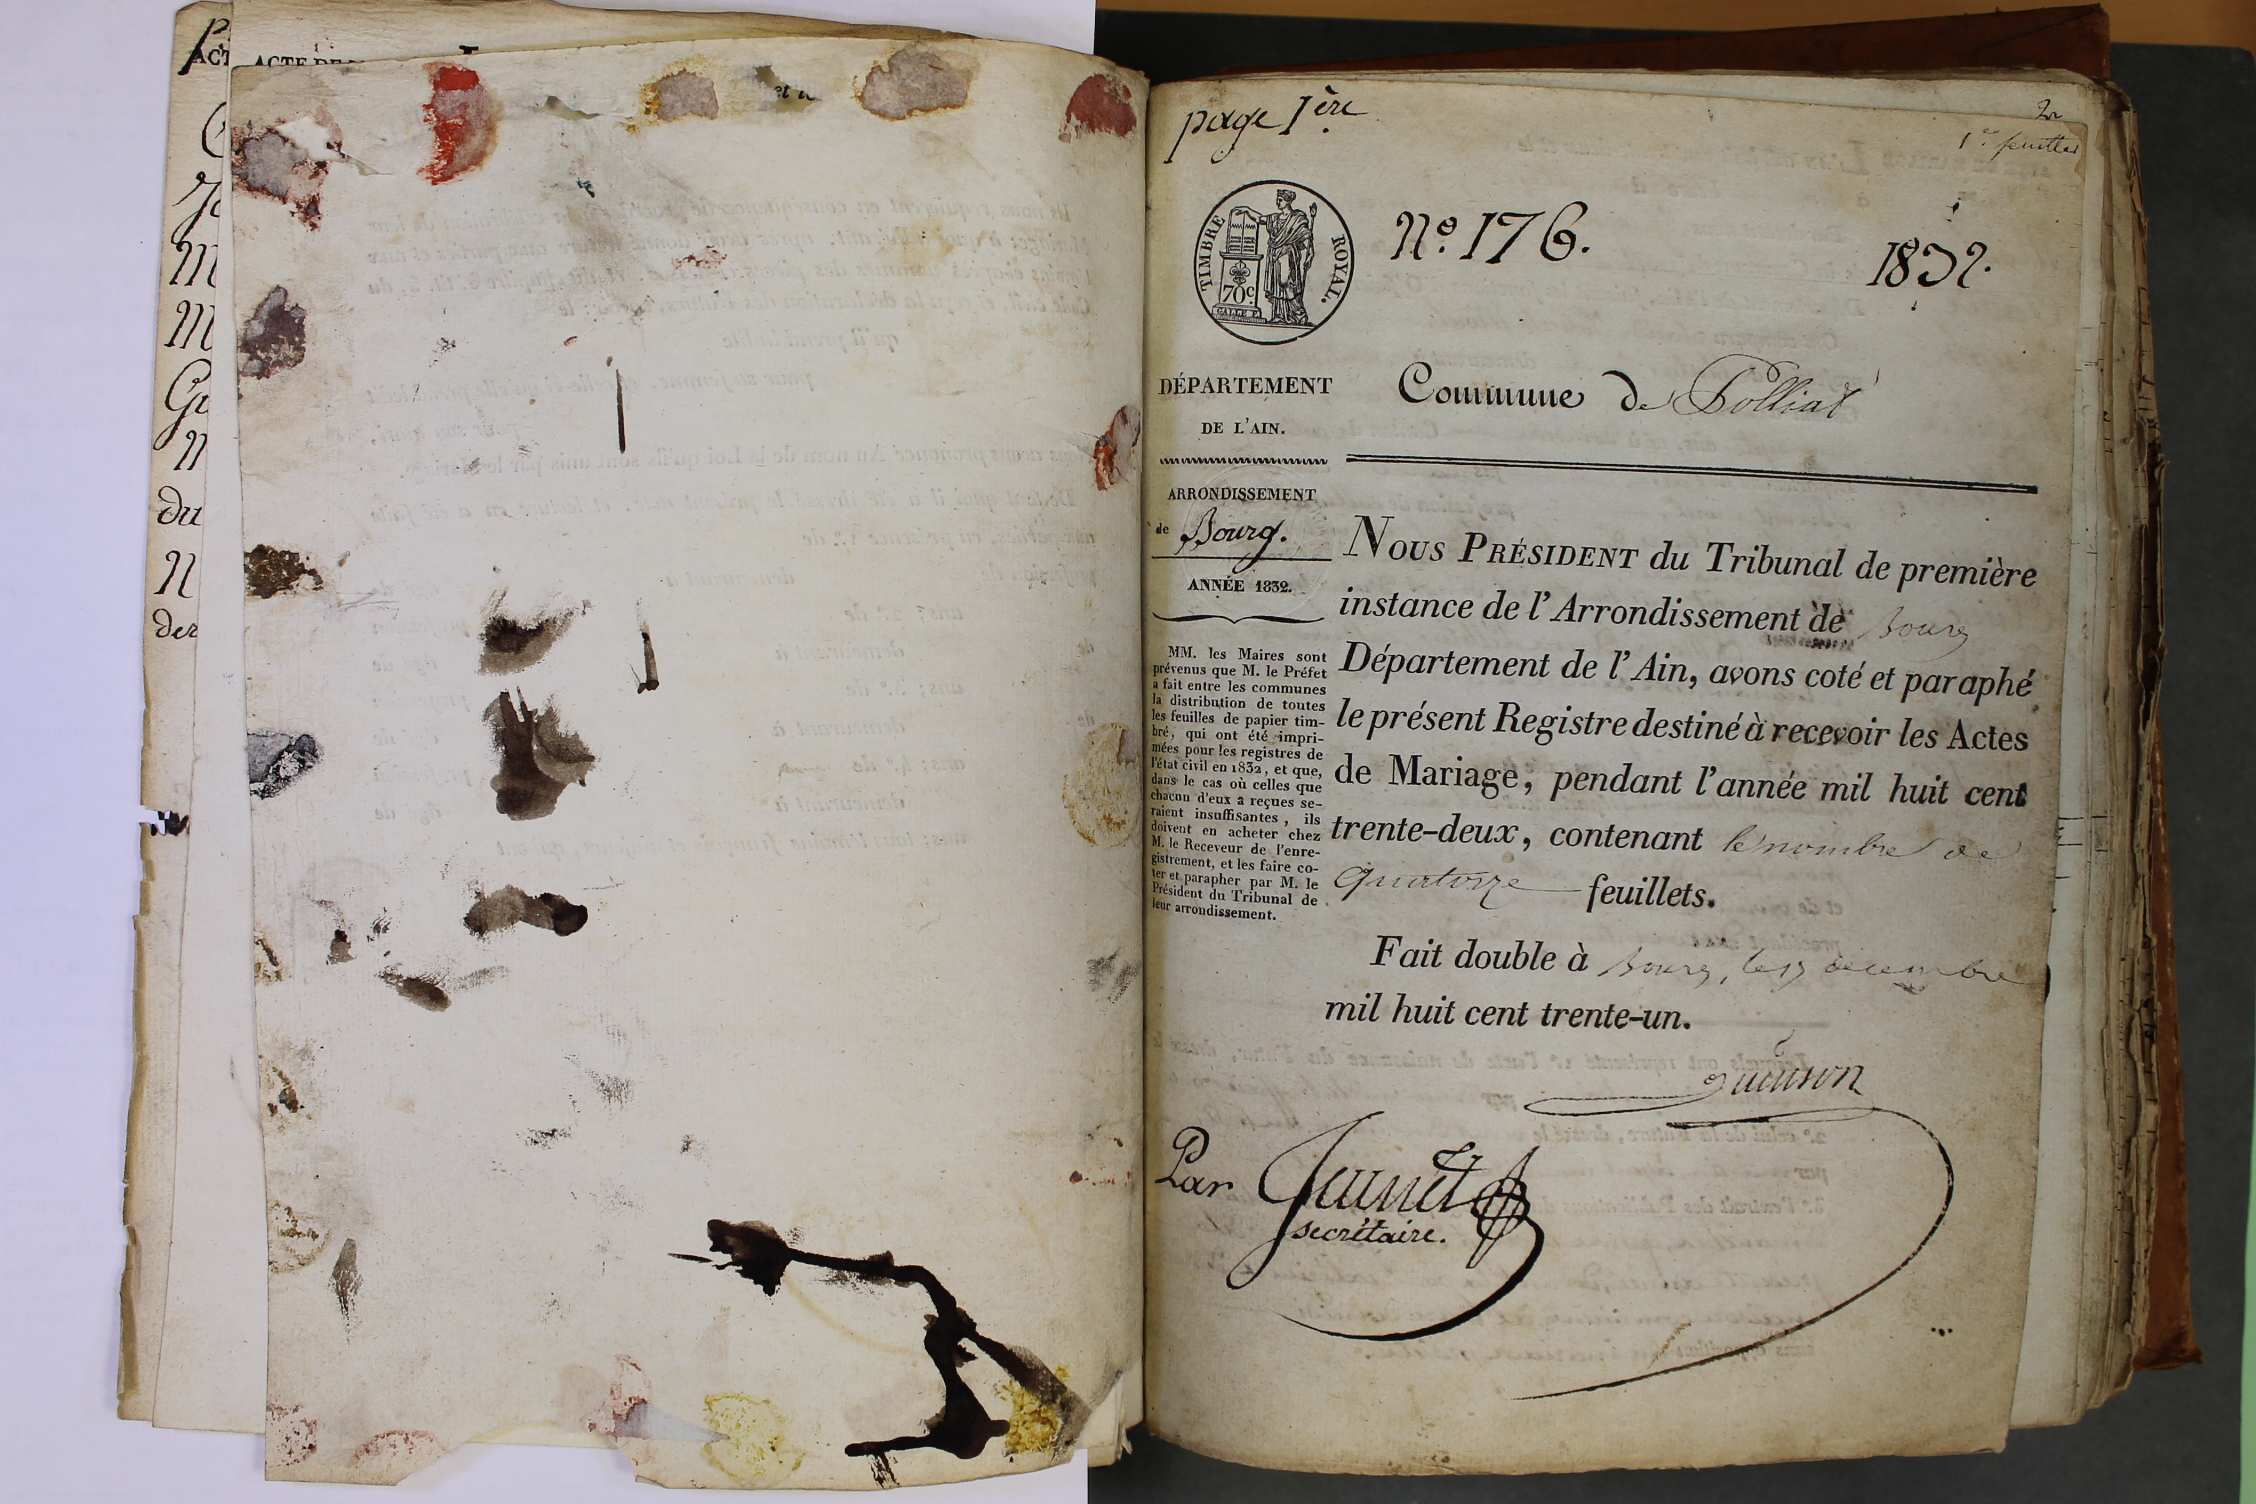 ACT
du
der
page 1ère
1er feuillet
TIMBRE ROYAL.
70 c.
N.º 176.
1832.
DÉPARTEMENT
DE L'AIN.
Commune de Polliat
ARRONDISSEMENT
de Bourg.
ANNÉE 1832.
MM. les Maires sont
prévenus que M. le Préfet
a fait entre les communes
la distribution de toutes
les feuilles de papier tim-
bré, qui ont été impri-
mées pour les registres de
l'état civil en 1832, et que,
dans le cas où celles que
chacun d'eux a reçues se-
raient insuffisantes, ils
doivent en acheter chez
M. le Receveur de l'enre-
gistrement, et les faire co-
ter et parapher par M. le
Président du Tribunal de
leur arrondissement.
NOUS PRÉSIDENT du Tribunal de première
instance de l'Arrondissement de Bourg
Département de l'Ain, avons coté et paraphé
le présent Registre destiné à recevoir les Actes
de Mariage, pendant l'année mil huit cent
trente-deux, contenant le nombre de
quatorze feuillets.
Fait double à Bourg, le decembre
mil huit cent trente-un.
Par
secrétaire.